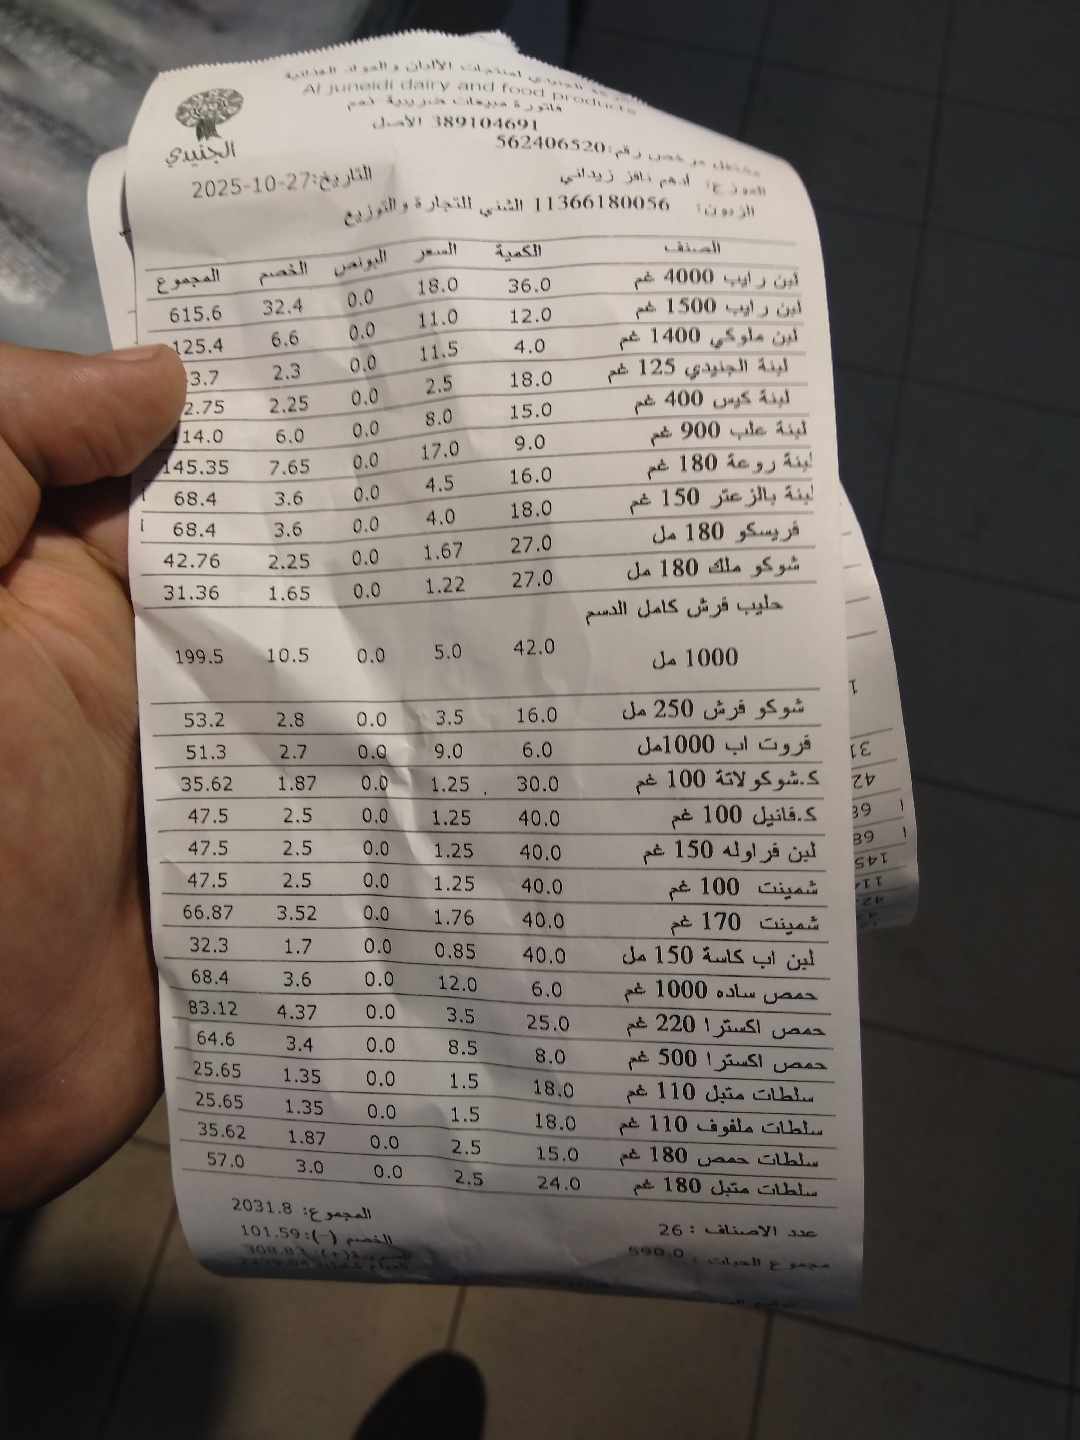 الجنيدي لمنتجات الألبان و المواد الغذائية
Al juneidi dairy and food products
فاتورة مبيعات ضريبية نعم
389104691 الأصل
مشتغل مرخص رقم:562406520
الموزع: ادهم نافز زيداني
التاريخ:27-10-2025
الزبون: 11366180056 الشني للتجارة والتوزيع
الجنيدي
الصنف الكمية السعر البونص الخصم المجموع
لبن رايب 4000 غم 36.0 18.0 0.0 32.4 615.6
لبن رايب 1500 غم 12.0 11.0 0.0 6.6 125.4
لبن ملوكي 1400 غم 4.0 11.5 0.0 2.3 3.7
لبنة الجنيدي 125 غم 18.0 2.5 0.0 2.25 2.75
لبنة كيس 400 غم 15.0 8.0 0.0 6.0 114.0
لبنة علب 900 غم 9.0 17.0 0.0 7.65 145.35
لبنة روعة 180 غم 16.0 4.5 0.0 3.6 68.4
لبنة بالزعتر 150 غم 18.0 4.0 0.0 3.6 68.4
فريسكو 180 مل 27.0 1.67 0.0 2.25 42.76
شوكو ملك 180 مل 27.0 1.22 0.0 1.65 31.36
حليب فرش كامل الدسم
1000 مل 42.0 5.0 0.0 10.5 199.5
شوكو فرش 250 مل 16.0 3.5 0.0 2.8 53.2
فروت اب 1000مل 6.0 9.0 0.0 2.7 51.3
ك.شوكولاتة 100 غم 30.0 1.25 0.0 1.87 35.62
ك.فانيل 100 غم 40.0 1.25 0.0 2.5 47.5
لبن فراوله 150 غم 40.0 1.25 0.0 2.5 47.5
شمينت 100 غم 40.0 1.25 0.0 2.5 47.5
شمينت 170 غم 40.0 1.76 0.0 3.52 66.87
لبن اب كاسة 150 مل 40.0 0.85 0.0 1.7 32.3
حمص ساده 1000 غم 6.0 12.0 0.0 3.6 68.4
حمص اكسترا 220 غم 25.0 3.5 0.0 4.37 83.12
حمص اكسترا 500 غم 8.0 8.5 0.0 3.4 64.6
سلطات متبل 110 غم 18.0 1.5 0.0 1.35 25.65
سلطات ملفوف 110 غم 18.0 1.5 0.0 1.35 25.65
سلطات حمص 180 غم 15.0 2.5 0.0 1.87 35.62
سلطات متبل 180 غم 24.0 2.5 0.0 3.0 57.0
عدد الاصناف : 26 المجموع: 2031.8
الخصم (-):101.59
مجموع الحبات : 590.0 الضريبة(+): 308.83